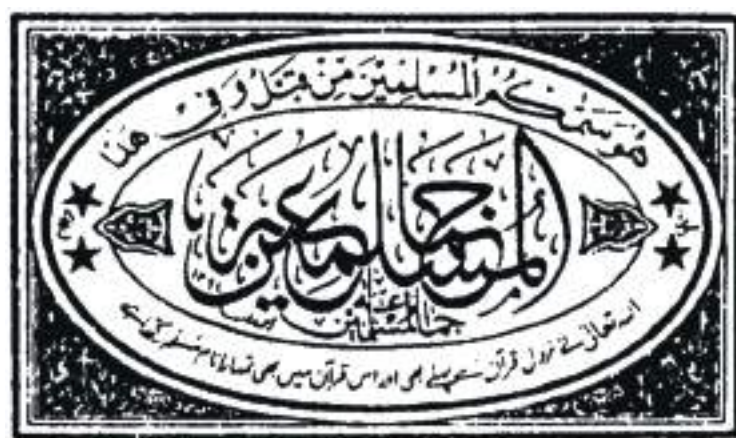 هُوَ سَمّٰكُمُ الْمُسْلِمِيْنَ مِنْ قَبْلُ وَ فِيْ هٰذَا
جماعة المسلمين
جماعۃ المسلمین
اللہ تعالیٰ نے نزول قرآن سے پہلے بھی اور اس قرآن میں بھی تمہارا نام مسلم رکھا ہے